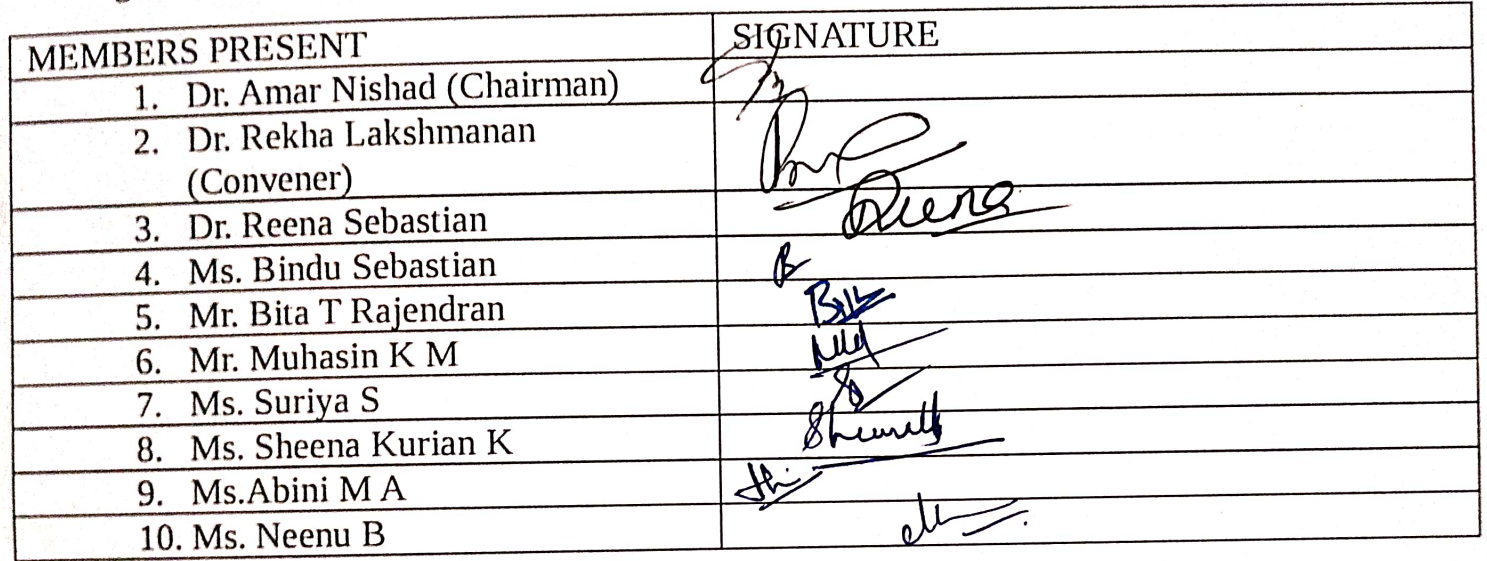 MEMBERS PRESENT SIGNATURE
1. Dr. Amar Nishad (Chairman)
2. Dr. Rekha Lakshmanan
(Convener)
3. Dr. Reena Sebastian Reena
4. Ms. Bindu Sebastian
5. Mr. Bita T Rajendran
6. Mr. Muhasin K M
7. Ms. Suriya S
8. Ms. Sheena Kurian K
9. Ms.Abini M A
10. Ms. Neenu B